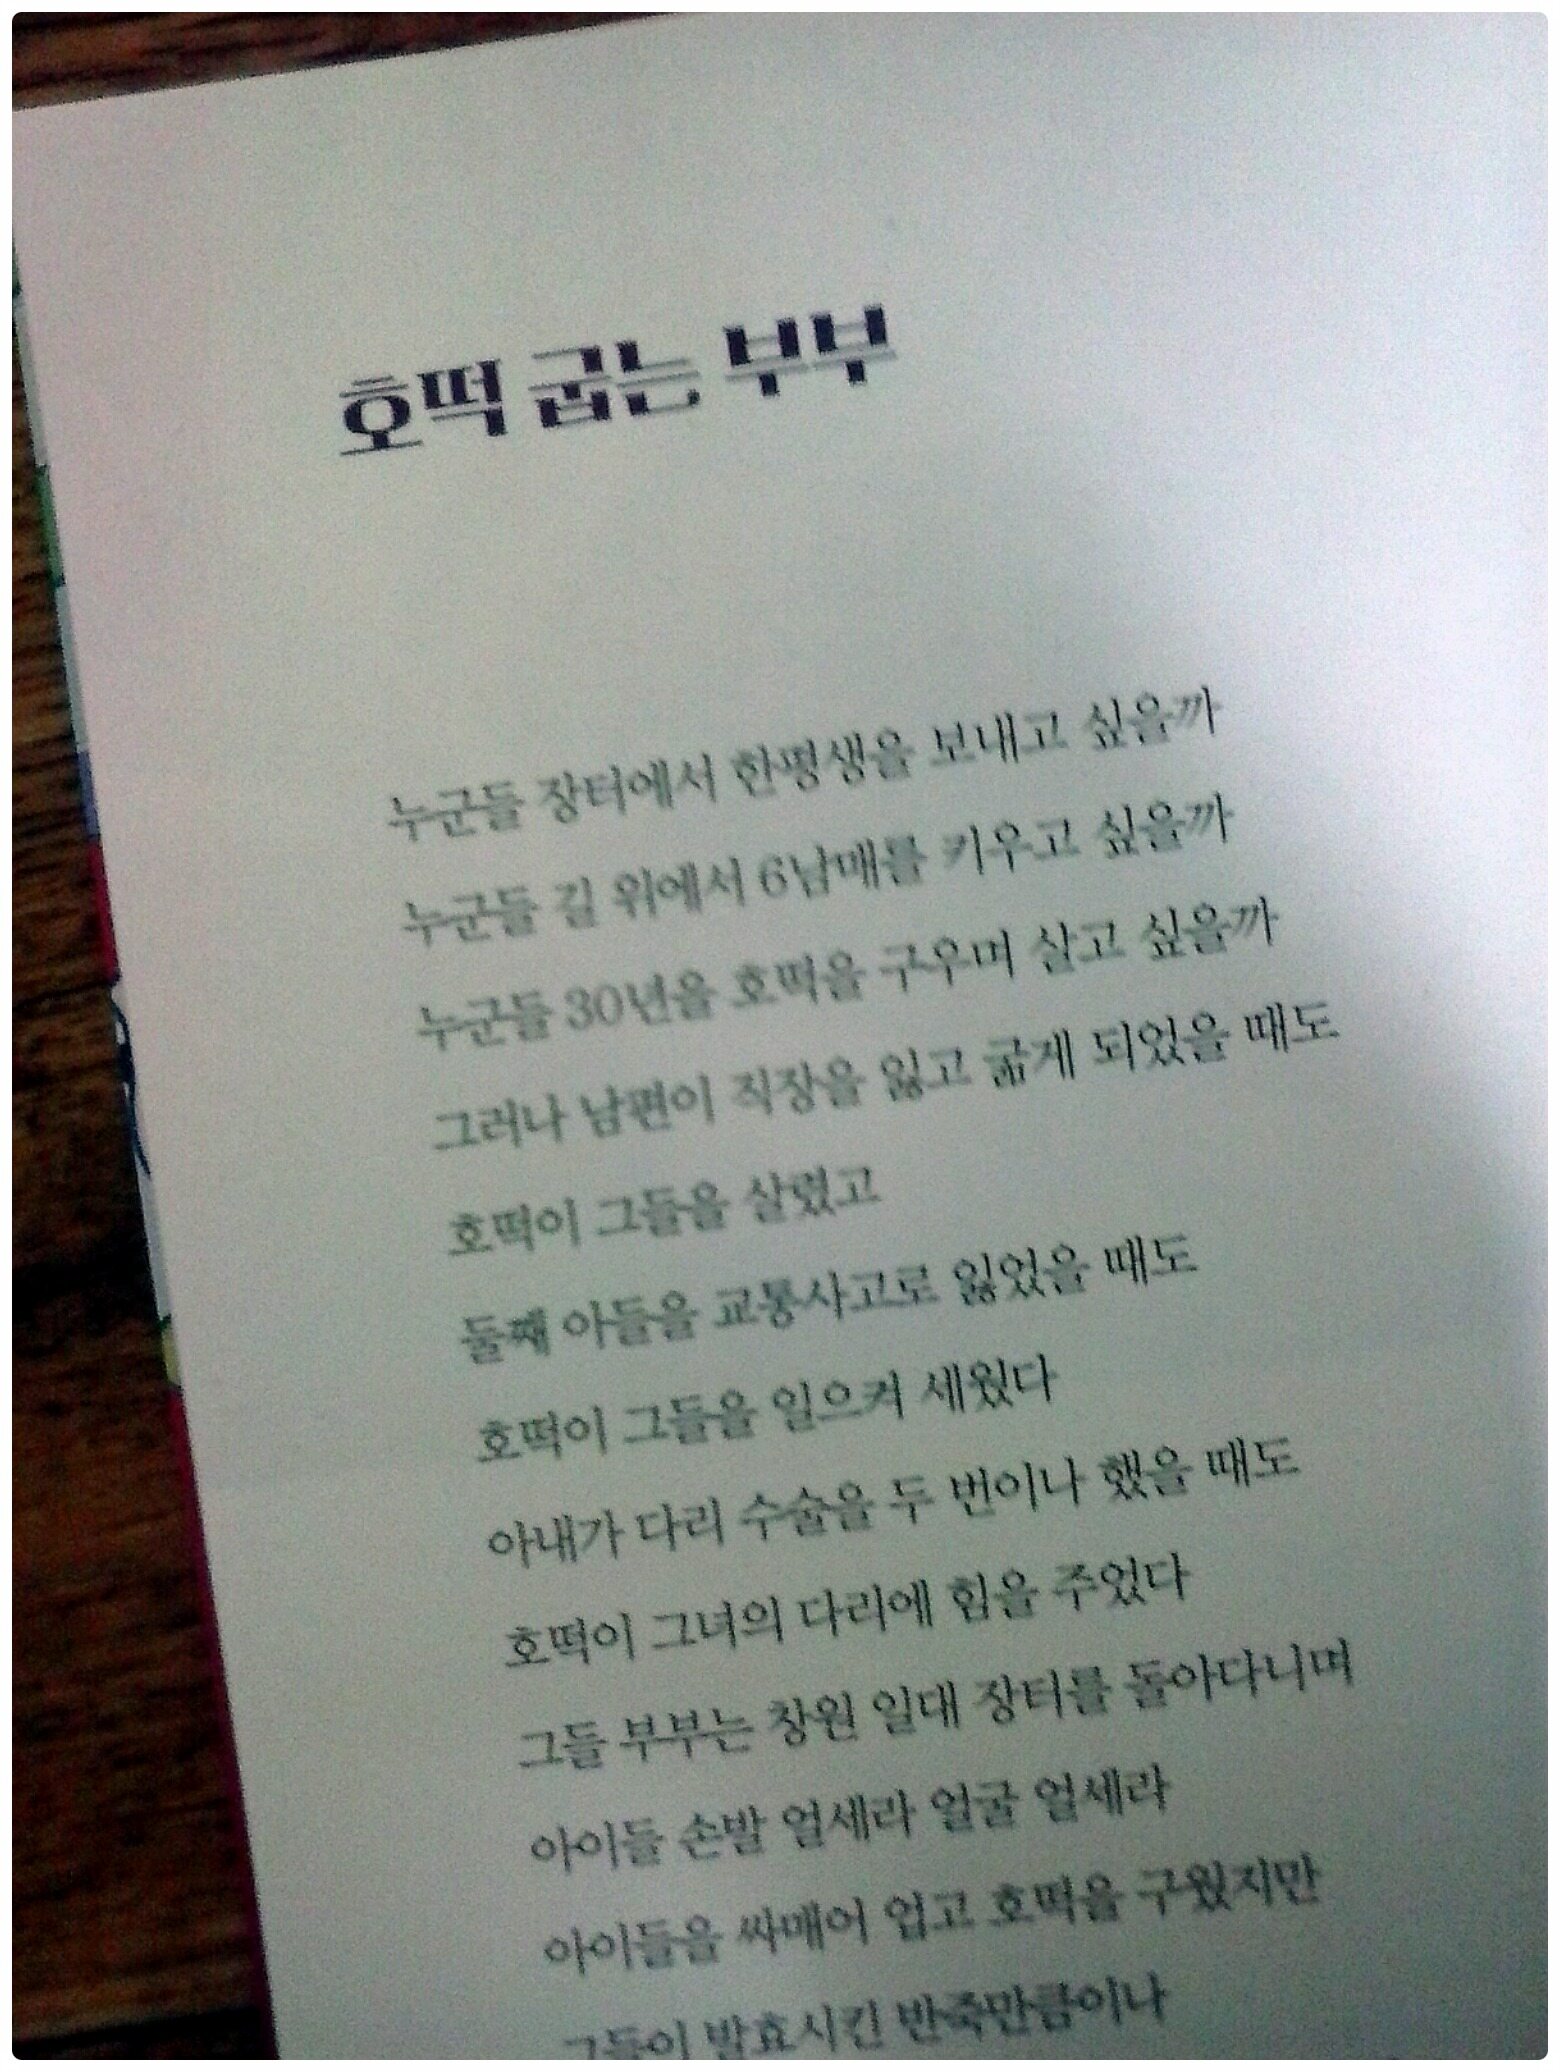 호떡 굽는 부부
누군들 장터에서 한평생을 보내고 싶을까
누군들 길 위에서 6남매를 키우고 싶을까
누군들 30년을 호떡을 구우며 살고 싶을까
그러나 남편이 직장을 잃고 굶게 되었을 때도
호떡이 그들을 살렸고
둘째 아들을 교통사고로 잃었을 때도
호떡이 그들을 일으켜 세웠다
아내가 다리 수술을 두 번이나 했을 때도
호떡이 그녀의 다리에 힘을 주었다
그들 부부는 창원 일대 장터를 돌아다니며
아이들 손발 얼세라 얼굴 얼세라
아이들을 싸매어 업고 호떡을 구웠지만
그들이 발효시킨 반죽만큼이나